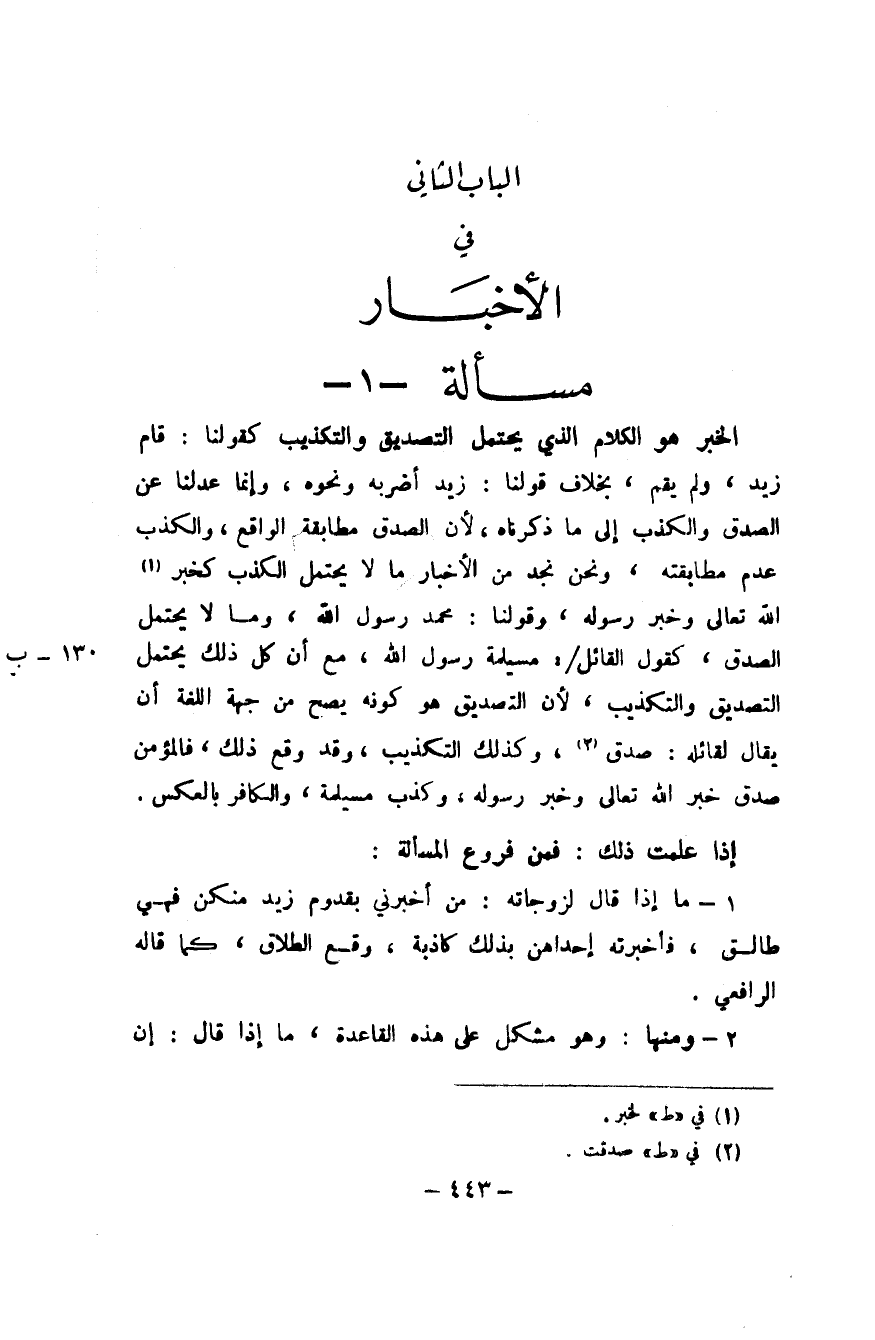 الباب الثاني
في
الأخبَـار
مسـألة -١-
الخبر هو الكلام الذي يحتمل التصديق والتكذيب كقولنا : قام
زيد ، ولم يقم ، بخلاف قولنا : زيد أضربه ونحوه ، وإنما عدلنا عن
الصدق والكذب إلى ما ذكرناه ، لأن الصدق مطابقة الواقع ، والكذب
عدم مطابقته ، ونحن نجد من الأخبار ما لا يحتمل الكذب كخبر (١)
الله تعالى وخبر رسوله ، وقولنا : محمد رسول الله ، وما لا يحتمل
الصدق ، كقول القائل/: مسيلمة رسول الله ، مع أن كل ذلك يحتمل
١٣٠ - ب
التصديق والتكذيب ، لأن التصديق هو كونه يصح من جهة اللغة أن
يقال لقائله : صدق (٢) ، وكذلك التكذيب ، وقد وقع ذلك ، فالمؤمن
صدق خبر الله تعالى وخبر رسوله ، وكذب مسيلمة ، والكافر بالعكس .
إذا علمت ذلك : فمن فروع المسألة :
١ - ما إذا قال لزوجاته : من أخبرني بقدوم زيد منكن فهـي
طالـق ، فأخبرته إحداهن بذلك كاذبة ، وقـع الطلاق ، كما قاله
الرافعي .
٢ - ومنها : وهو مشكل على هذه القاعدة ، ما إذا قال : إن
(١) في «ط» لخبر .
(٢) في «ط» صدقت .
- ٤٤٣ -